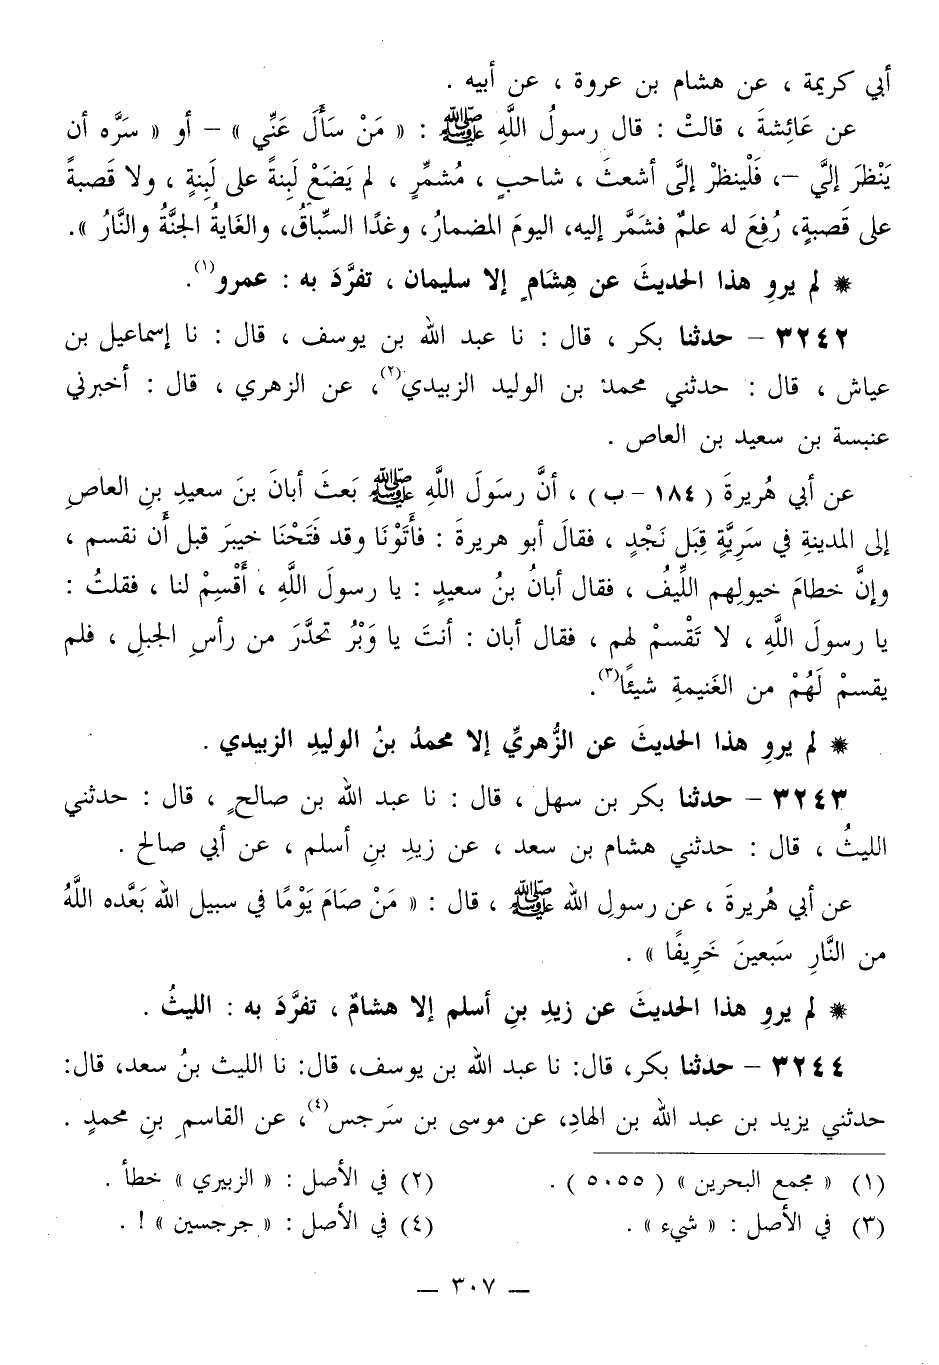 أبي كريمة ، عن هشام بن عروة ، عن أبيه .
عن عَائِشةَ ، قالتْ : قال رسولُ اللَّهِ ﷺ : « مَنْ سَأَلَ عَنِّي » – أو « سَرَّه أن
يَنْظرَ إليَّ –، فَلْينظرْ إلىَّ أشعثَ ، شاحبٍ ، مُشمِّرٍ ، لم يَضَعْ لَبِنةً على لَبِنةٍ ، ولا قَصبةً
على قَصبةٍ، رُفِعَ له علمٌ فشمَّر إليه، اليومَ المضمارُ، وغدًا السِّباقُ، والغَايةُ الجنَّةُ والنَّارُ ».
* لم يروِ هذا الحديثَ عن هِشَامٍ إلا سليمان ، تفرَّدَ به : عمرو(١).
٣٢٤٢ – حدثنا بكر ، قال : نا عبد الله بن يوسف ، قال : نا إسماعيل بن
عياش ، قال : حدثني محمدُ بن الوليد الزبيدي(٢)، عن الزهري ، قال : أخبرني
عنبسة بن سعيد بن العاص .
عن أبي هُريرةَ ( ١٨٤ – ب ) ، أنَّ رسولَ اللَّهِ ﷺ بَعثَ أبانَ بنَ سعيدِ بنِ العاصِ
إلى المدينةِ في سَرِيَّةٍ قِبَل نَجْدٍ ، فقالَ أبو هريرةَ : فأَتَوْنَا وقد فَتَحْنَا خيبرَ قبل أَن نقسم ،
وإنَّ خطامَ خيولِهم اللِّيفُ ، فقال أبانُ بنُ سعيدٍ : يا رسولَ اللَّهِ ، أَقْسِمْ لنا ، فقلتُ :
يا رسولَ اللَّهِ ، لا تَقْسمْ لهم ، فقال أبان : أنتَ يا وَبْرُ تحدَّرَ من رأسِ الجبلِ ، فلم
يقسمْ لَهُمْ من الغَنيمةِ شيئًا(٣).
* لم يروِ هذا الحديثَ عن الزُّهريِّ إلا محمدُ بنُ الوليدِ الزبيدي .
٣٢٤٣ – حدثنا بكر بن سهل ، قال : نا عبد الله بن صالحٍ ، قال : حدثني
الليثُ ، قال : حدثني هشام بن سعد ، عن زيدِ بنِ أسلم ، عن أبي صالح .
عن أبي هُريرةَ ، عن رسولِ الله ﷺ ، قال : « مَنْ صَامَ يَوْمًا في سبيل الله بَعَّده اللَّهُ
من النَّارِ سَبعينَ خَرِيفًا » .
* لم يروِ هذا الحديثَ عن زيدِ بنِ أسلم إلا هشامٌ ، تفرَّدَ به : الليثُ .
٣٢٤٤ – حدثنا بكر، قال: نا عبد الله بن يوسف، قال: نا الليث بنُ سعد، قال:
حدثني يزيد بن عبد الله بن الهادِ، عن موسى بن سَرجس(٤)، عن القاسمِ بنِ محمدٍ .
(١) « مجمع البحرين » ( ٥٠٥٥ ) .
(٢) في الأصل : « الزبيري » خطأ .
(٣) في الأصل : « شيء » .
(٤) في الأصل : « جرجسين » ! .
– ٣٠٧ –